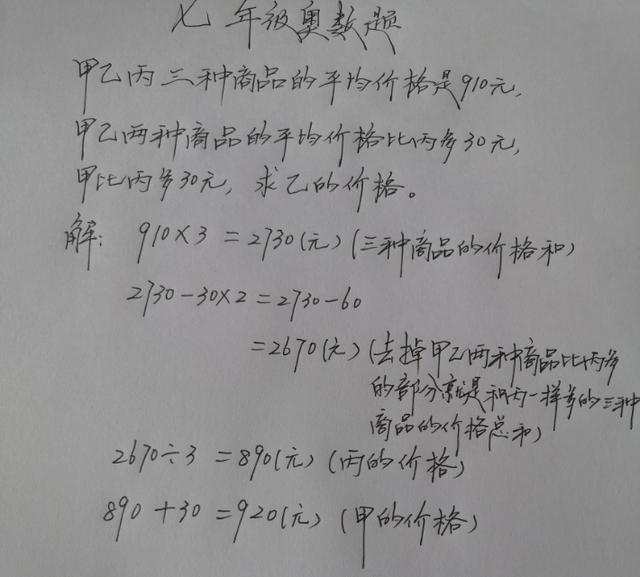 七年级奥数题
甲乙丙三种商品的平均价格是910元,
甲乙两种商品的平均价格比丙多30元,
甲比丙多30元, 求乙的价格。
解: 910×3=2730(元)(三种商品的价格和)
2730-30×2=2730-60
=2670(元)(去掉甲乙两种商品比丙多
的部分就是和丙一样多的三种
商品的价格总和)
2670÷3=890(元)(丙的价格)
890+30=920(元)(甲的价格)